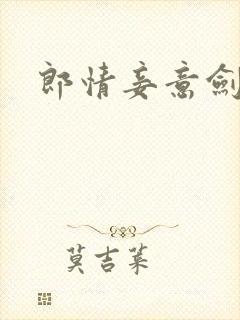 郎情妾意劍
莫吉萊